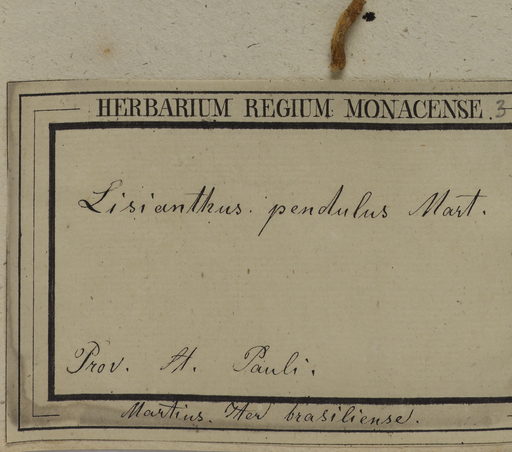 HERBARIUM REGIUM MONACENSE. 3
Lisianthus. pendulus Mart.
Prov. St. Pauli.
Martius. Iter brasiliense.